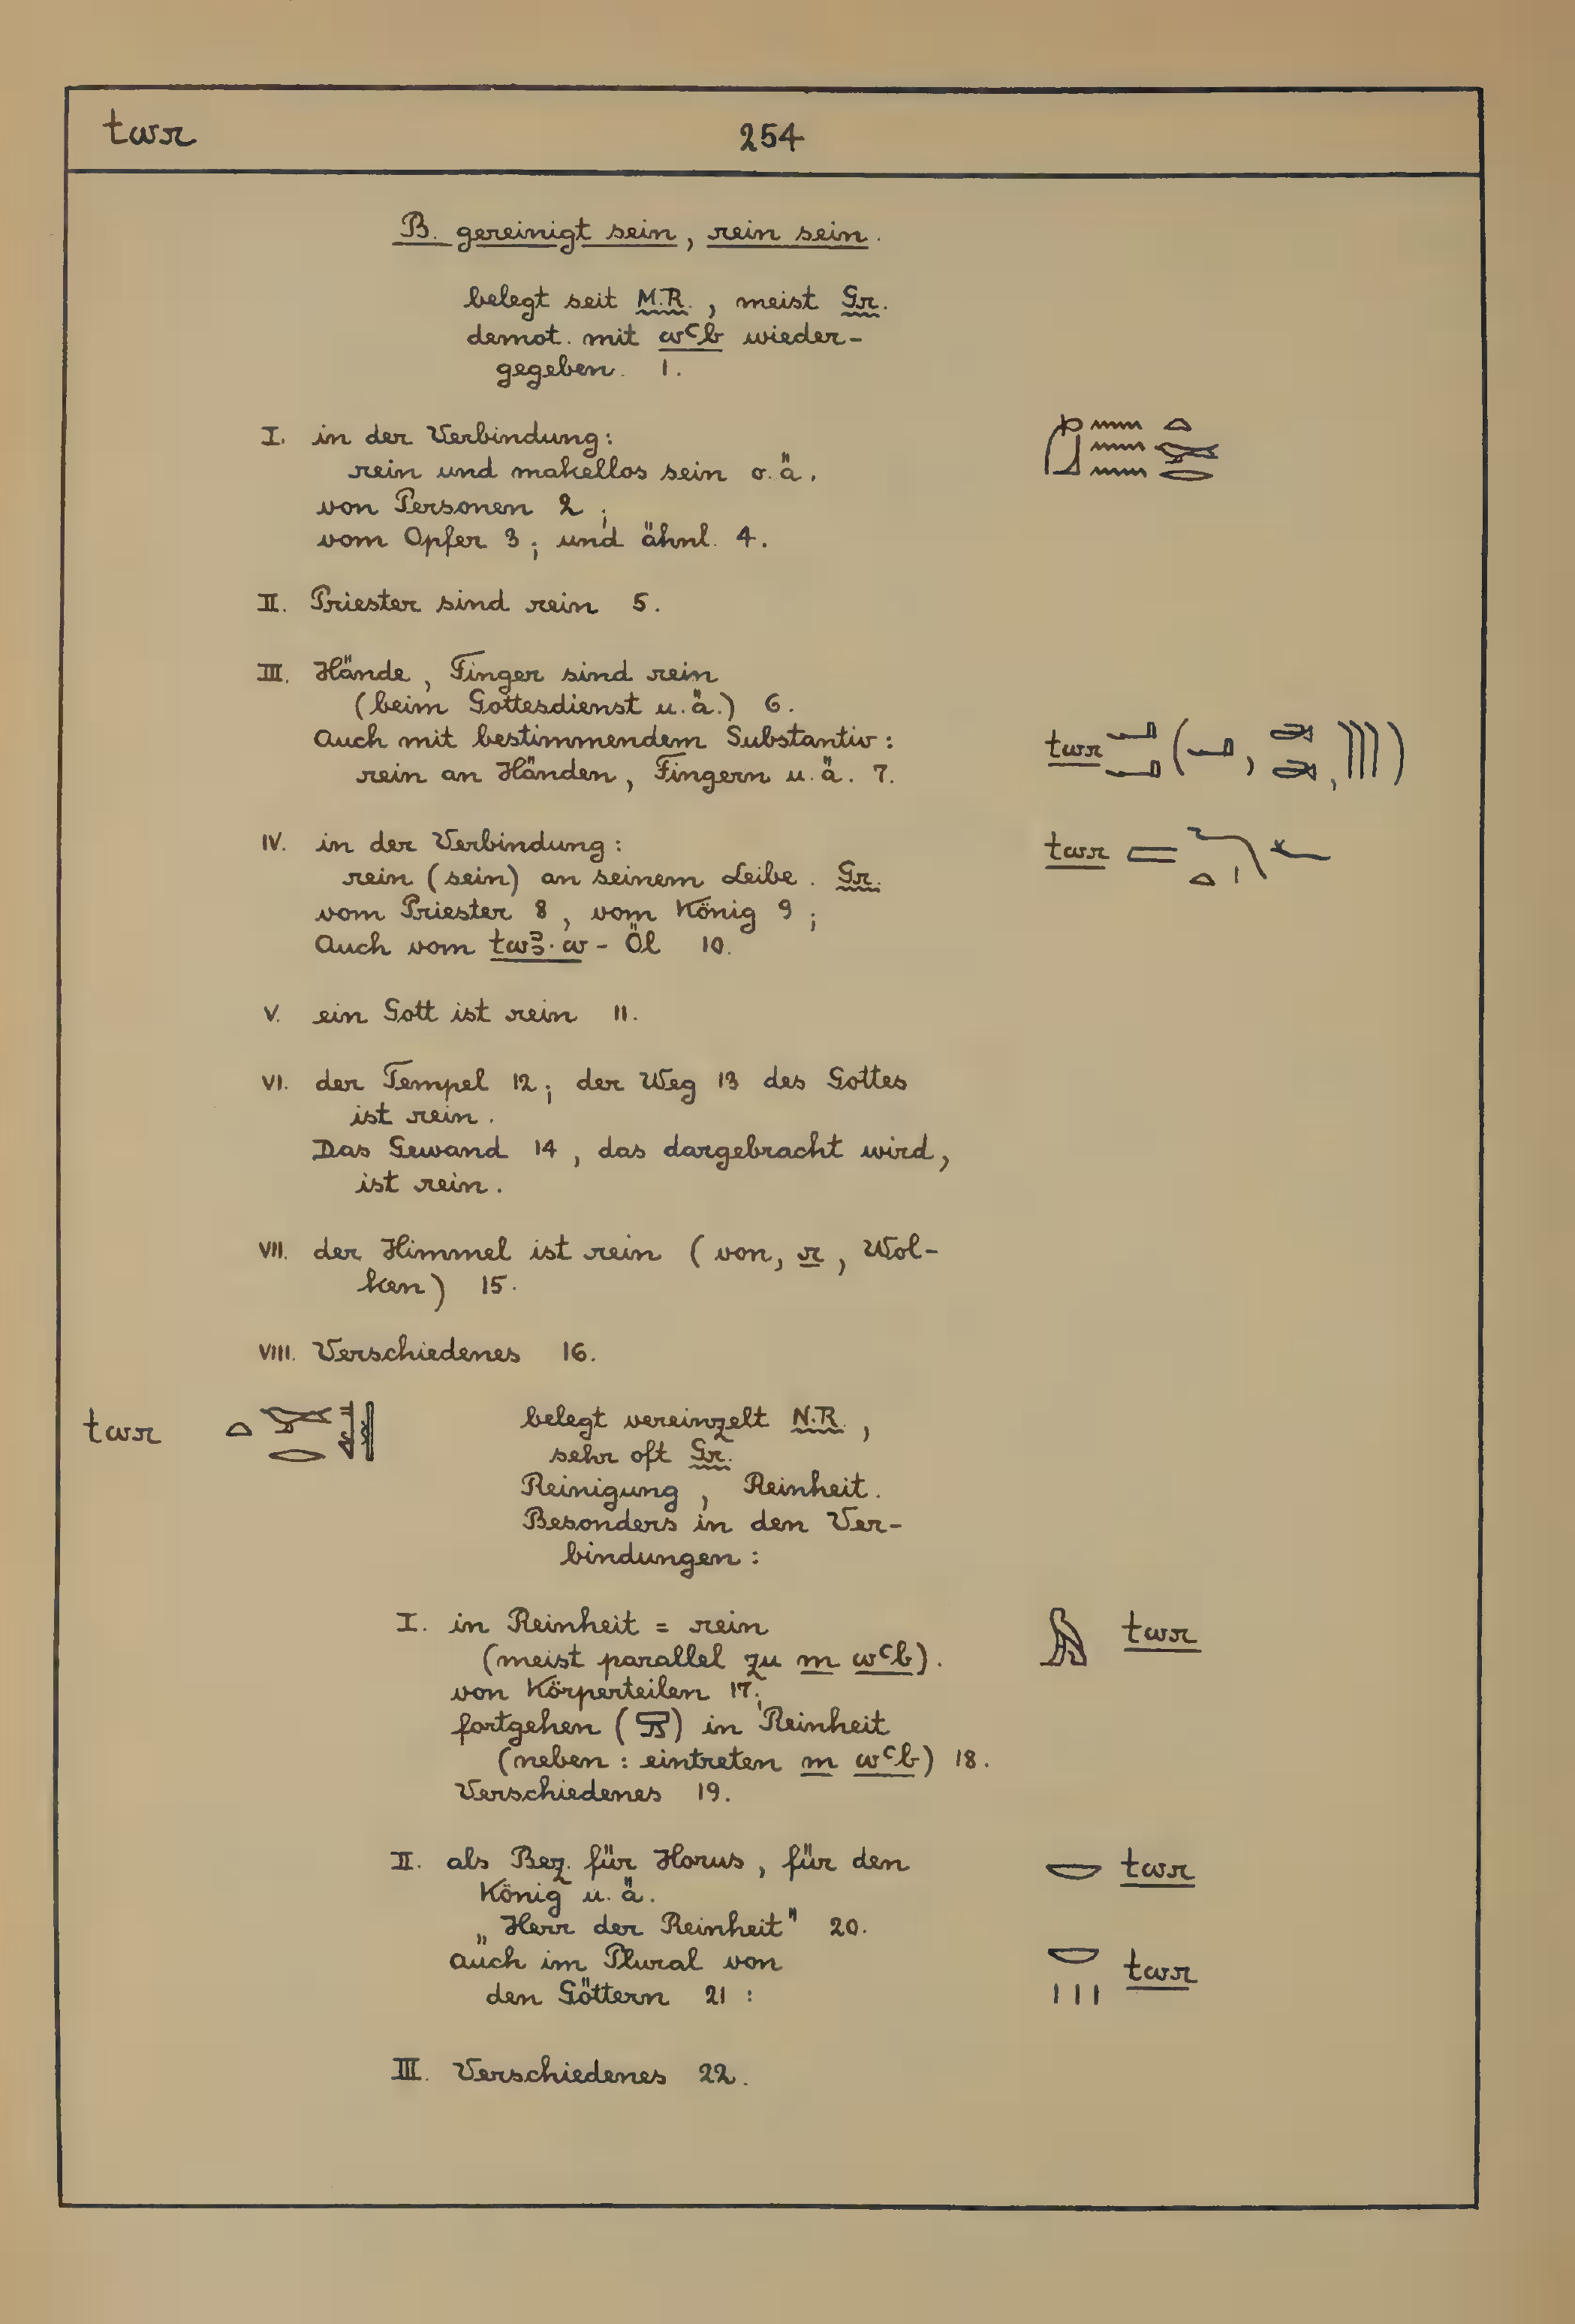 twr 254
B. gereinigt sein, rein sein.
belegt seit M.R., meist Gr.
demot. mit wꜥb wieder-
gegeben. 1.
I. in der Verbindung:
rein und makellos sein o.ä.
von Personen 2;
vom Opfer 3; und ähnl. 4.
II. Priester sind rein 5.
III. Hände, Finger sind rein
(beim Gottesdienst u.ä.) 6.
Auch mit bestimmendem Substantiv: twr
rein an Händen, Fingern u.ä. 7.
IV. in der Verbindung: twr
rein (sein) an seinem Leibe. Gr.
vom Priester 8, vom König 9;
Auch vom twꜣ.w-Öl 10.
V. ein Gott ist rein 11.
VI. der Tempel 12; der Weg 13 des Gottes
ist rein.
Das Gewand 14, das dargebracht wird,
ist rein.
VII. der Himmel ist rein (von, r, Wol-
ken) 15.
VIII. Verschiedenes 16.
twr belegt vereinzelt N.R.,
sehr oft Gr.
Reinigung, Reinheit.
Besonders in den Ver-
bindungen:
I. in Reinheit = rein twr
(meist parallel zu m wꜥb).
von Körperteilen 17;
fortgehen ( ) in Reinheit
(neben: eintreten m wꜥb) 18.
Verschiedenes 19.
II. als Bez. für Horus, für den twr
König u.ä.
„Herr der Reinheit" 20.
Auch im Plural von twr
den Göttern 21:
III. Verschiedenes 22.